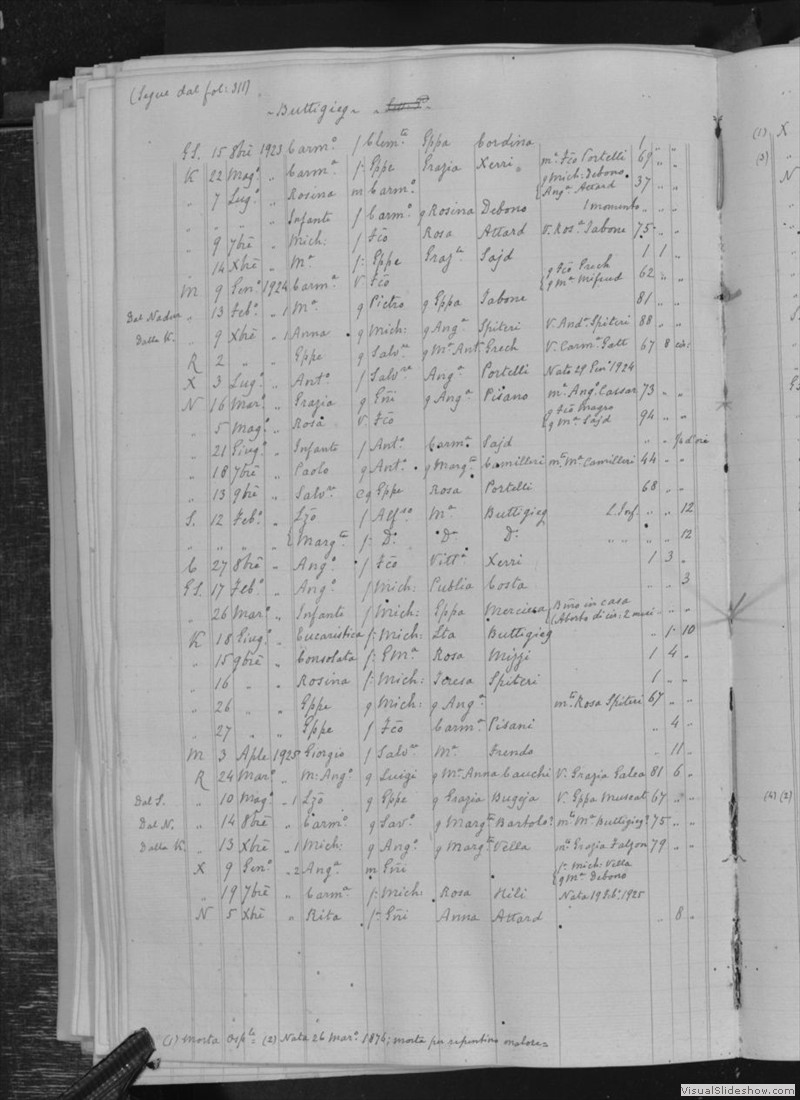 (Segue dal fol: 311)
- Buttigieg -
GS. 15 8bre 1923 Carm.o f Clem.te Eppa Cordina 1 " "
K 22 Mag.o " Carm.a f. Eppe Grazia Xerri m.a Fco Portelli 69 " "
" 7 Lug.o " Rosina m Carm.o { g Mich: Debono Ang.a Attard 37 " "
" " " " Infante f Carm.o g Rosina Debono 1 momento " " "
" 9 7bre " Mich: f Fco Rosa Attard V. Ros.a Tabone 75 " "
" 14 Xbre " M.a f. Eppe Graz.a Sajd 1 1 "
M 9 Gen.o 1924 Carm.a V. Fco { g Fco Grech g M.a Mifsud 62 " "
Dal Nadur " 13 Feb.o " 1 M.a g Pietro g Eppa Tabone 81 " "
Dalla K. " 9 Xbre " 1 Anna g Mich: g Ang.a Spiteri V. And.a Spiteri 88 " "
R 2 " " Eppe g Salv.re g M.a Ant. Grech V. Carm.a Gatt 67 8
X 3 Lug.o " Ant.o f Salv.re Ang.a Portelli Nato 29 Gen.o 1924
N 16 Mar.o " Grazia g Gni g Ang.a Pisano m.a Ang.o Cassar 73 " "
" 5 Mag.o " Rosa V. Fco { g Fco Magro g M.a Sajd 94 " "
" 21 Giug.o " Infante f Ant.o Carm.a Sajd " "
" 18 7bre " Paolo g Ant.o g Marg.ta Camilleri m.to M.a Camilleri 44 " "
" 13 9bre " Salv.re cg Eppe Rosa Portelli 68 " "
S. 12 Feb.o " Lzo f Alf.so M.a Buttigieg " " 12
" " " " { Marg.ta f. D.o D.a D.o " " " " 12
C 27 8bre " Ang.o f Fco Vitt.a Xerri 1 3 "
GS. 17 Feb.o " Ang.o f Mich: Publia Costa " " 3
" 26 Mar.o " Infante f Mich: Eppa Mercieca { Bmo in casa (Aborto di cir: 2 mesi " " "
K 18 Giug.o " Eucaristica f. Mich: Lta Buttigieg " 1 10
" 15 9bre " Consolata f. Gma Rosa Mizzi 1 4 "
" 16 " " Rosina f. Mich: Teresa Spiteri 1 " "
" 26 " " Eppe g Mich: g Ang.a m.to Rosa Spiteri 67 " "
" 27 " " Eppe f Fco Carm.a Pisani " 4 "
M 3 Aple 1925 Giorgio f Salv.re M.a Frendo " 11 "
R 24 Mar.o " M: Ang.a g Luigi g M.a Anna Cauchi V. Grazia Galea 81 6 "
Dal S. " 10 Mag.o " 1 Lzo g Eppe g Grazia Bugeja V. Eppa Muscat 67 " "
Dal N. " 14 8bre " Carm.o g Sav.o g Marg.ta Bartolo m.to M.a Buttigieg 75 " "
Dalla K. " 13 Xbre " 1 Mich: g Ang.o g Marg.ta Vella m.to Grazia Falzon 79 " "
X 9 Gen.o " 2 Ang.a m Gni { f. Mich: Vella g M.a Debono
" 19 7bre " Carm.a f. Mich: Rosa Hili Nata 19 1925
N 5 Xbre " Rita f. Gni Anna Attard " 8 "
(1) Morta Osp.le = (2) Nata 26 Mar.o 1876; morta per repentino malore =
(1) X
(3) "
N
GS
(4) (2)
VisualSlideshow.com